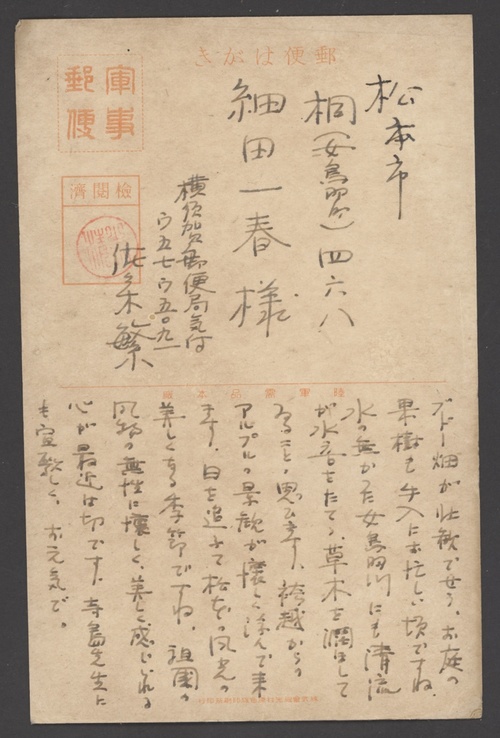 郵便はがき
軍事
郵便
検閲済
松本市
桐（女鳥羽町）四六八
細田一春様
横須賀郵便局気付
ウ五七ウ五〇九一
佐条繁
陸軍需品本廠
ブドー畑が壮観でせう。お庭の
果樹も手入にお忙しい頃ですね。
水の無かった女鳥羽川にも清流
が水音をたてゝ、草木を潤ほして
ゐることゝ思ひます。袴越からの
アルプスの景観が懐しく浮んで来
ます。日を追ふて松本の風光の
美しくなる季節ですね。祖国の
風物が無性に懐しく、美しく感じられる
心が最近は切です。寺島先生に
も宜敷く。お元気で。